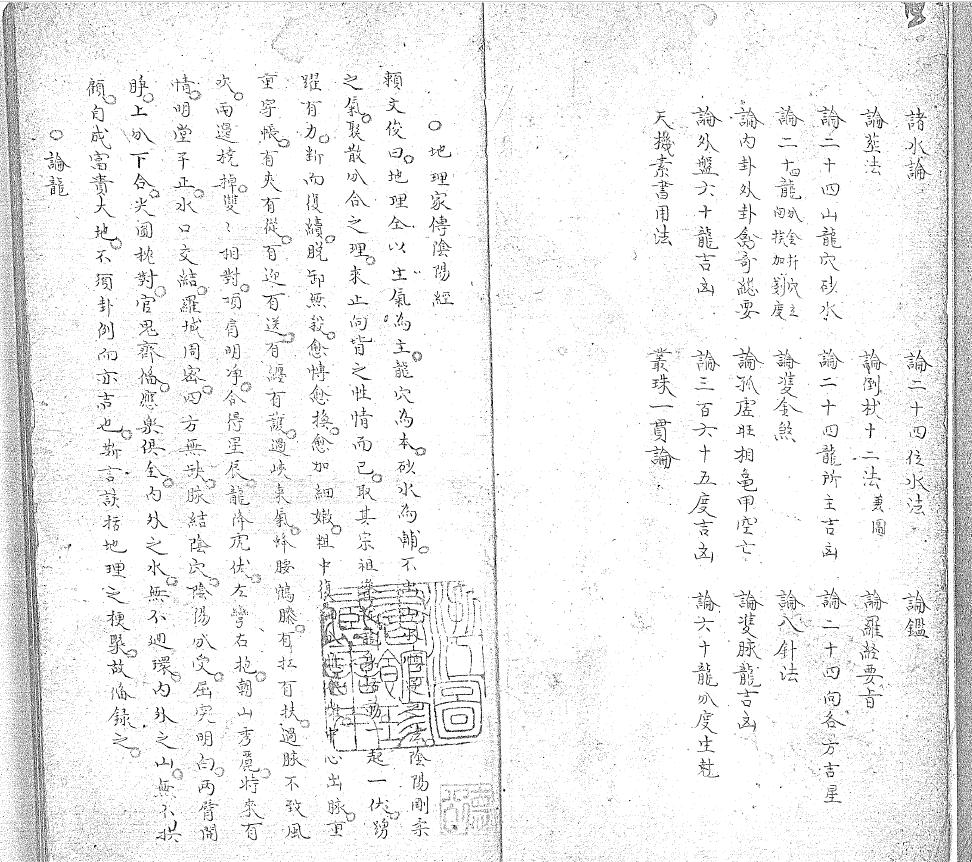 諸水論　論二十四位水法　論鑑
論葬法　論倒杖十二法 兼圖　論羅経要旨
論二十四山龍穴砂水　論二十四龍所主吉凶　論二十四向各方吉星
論二十四龍　論雙金煞　論八針法
論內卦外卦禽奇總要　論孤虛旺相龜甲空亡　論雙脉龍吉凶
論外盤六十龍吉凶　論三百六十五度吉凶　論六十龍分度生尅
天機素書用法　叢珠一貫論
○地理家傳陰陽經
賴文俊曰地理全以生氣為主龍穴為本砂水為輔不陰陽剛柔
之氣聚散分合之理來止向背之性情而已取其宗祖起一伏踴
躍有力断而復續脱卸無殺愈博愈換愈加細嫩粗中復心出脉重
重穿帳有夾有從有迎有送有纏有護過峽束氣蜂腰鶴膝有扛有扶過脉不致風
吹兩邊桡掉雙〻相對項肩明净合得星辰龍降虎伏左彎右抱朝山秀麗將來有
情明堂平正水口交結羅城周密四方無缺脉結陰穴陰陽分受屈突明白兩臂開
睁上分下合尖圓枕對官鬼齊備應樂俱全內外之水無不廻環內外之山無不拱
顧自成富貴大地不須卦例向亦吉也斯言該括地理之梗槩故俻録之
○論龍